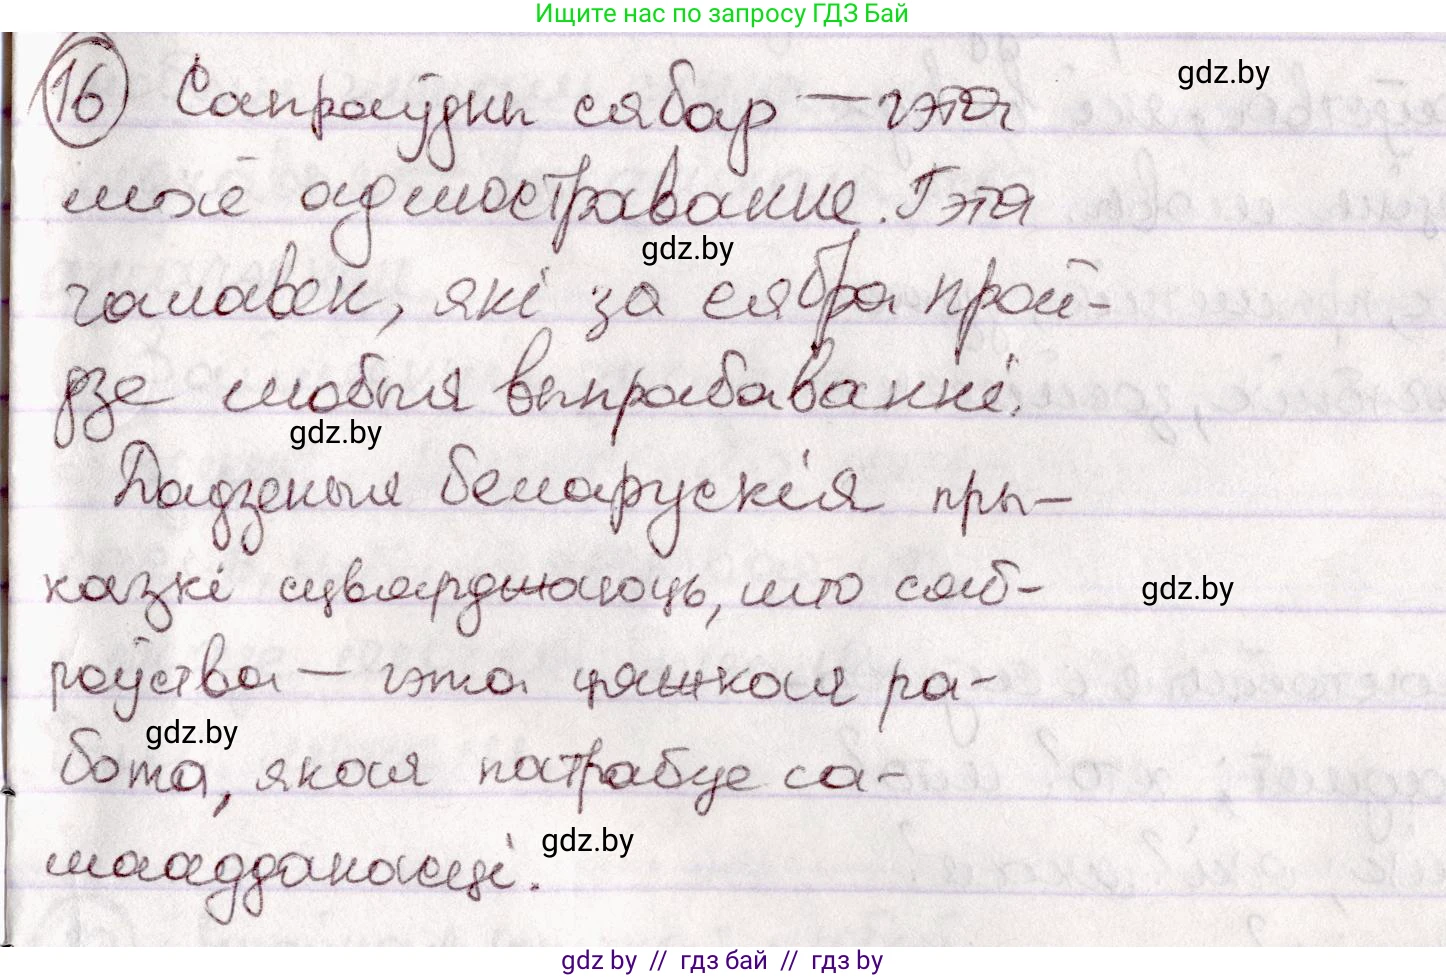 Ищите нас по запросу ГДЗ Бай
16 Сапраўдны сябар — гэта
gdz.by
маё адлюстраванне. Гэта
gdz.by
чалавек, які за сябра прой-
дзе любыя выпрабаванні.
gdz.by
Дадзеныя беларускія пры-
казкі сцвярджаюць, што сяб-
gdz.by
роўства — гэта цяжкая ра-
gdz.by
бота, якая патрабуе са-
gdz.by
мааддданасці.
gdz.by // гдз бай // гдз by